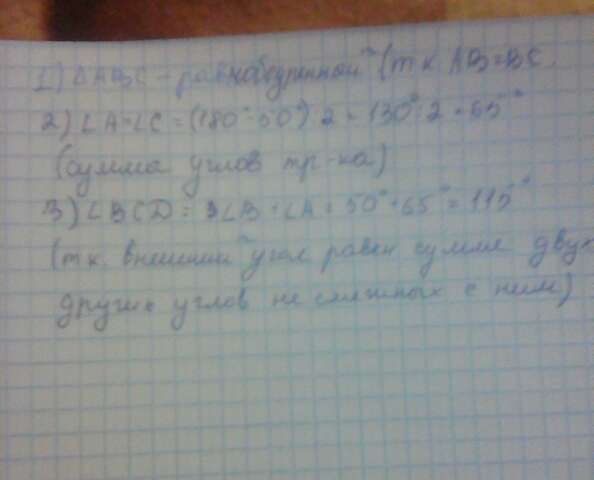 1) ΔABC - равнобедренный (т.к AB=BC.
2) ∠A=∠C = (180°-50°):2 = 130°:2 = 65°
(сумма углов тр-ка)
3) ∠BCD = ∠B + ∠A = 50°+65° = 115°
(т.к. внешний угол равен сумме двух
других углов не смежных с ним)